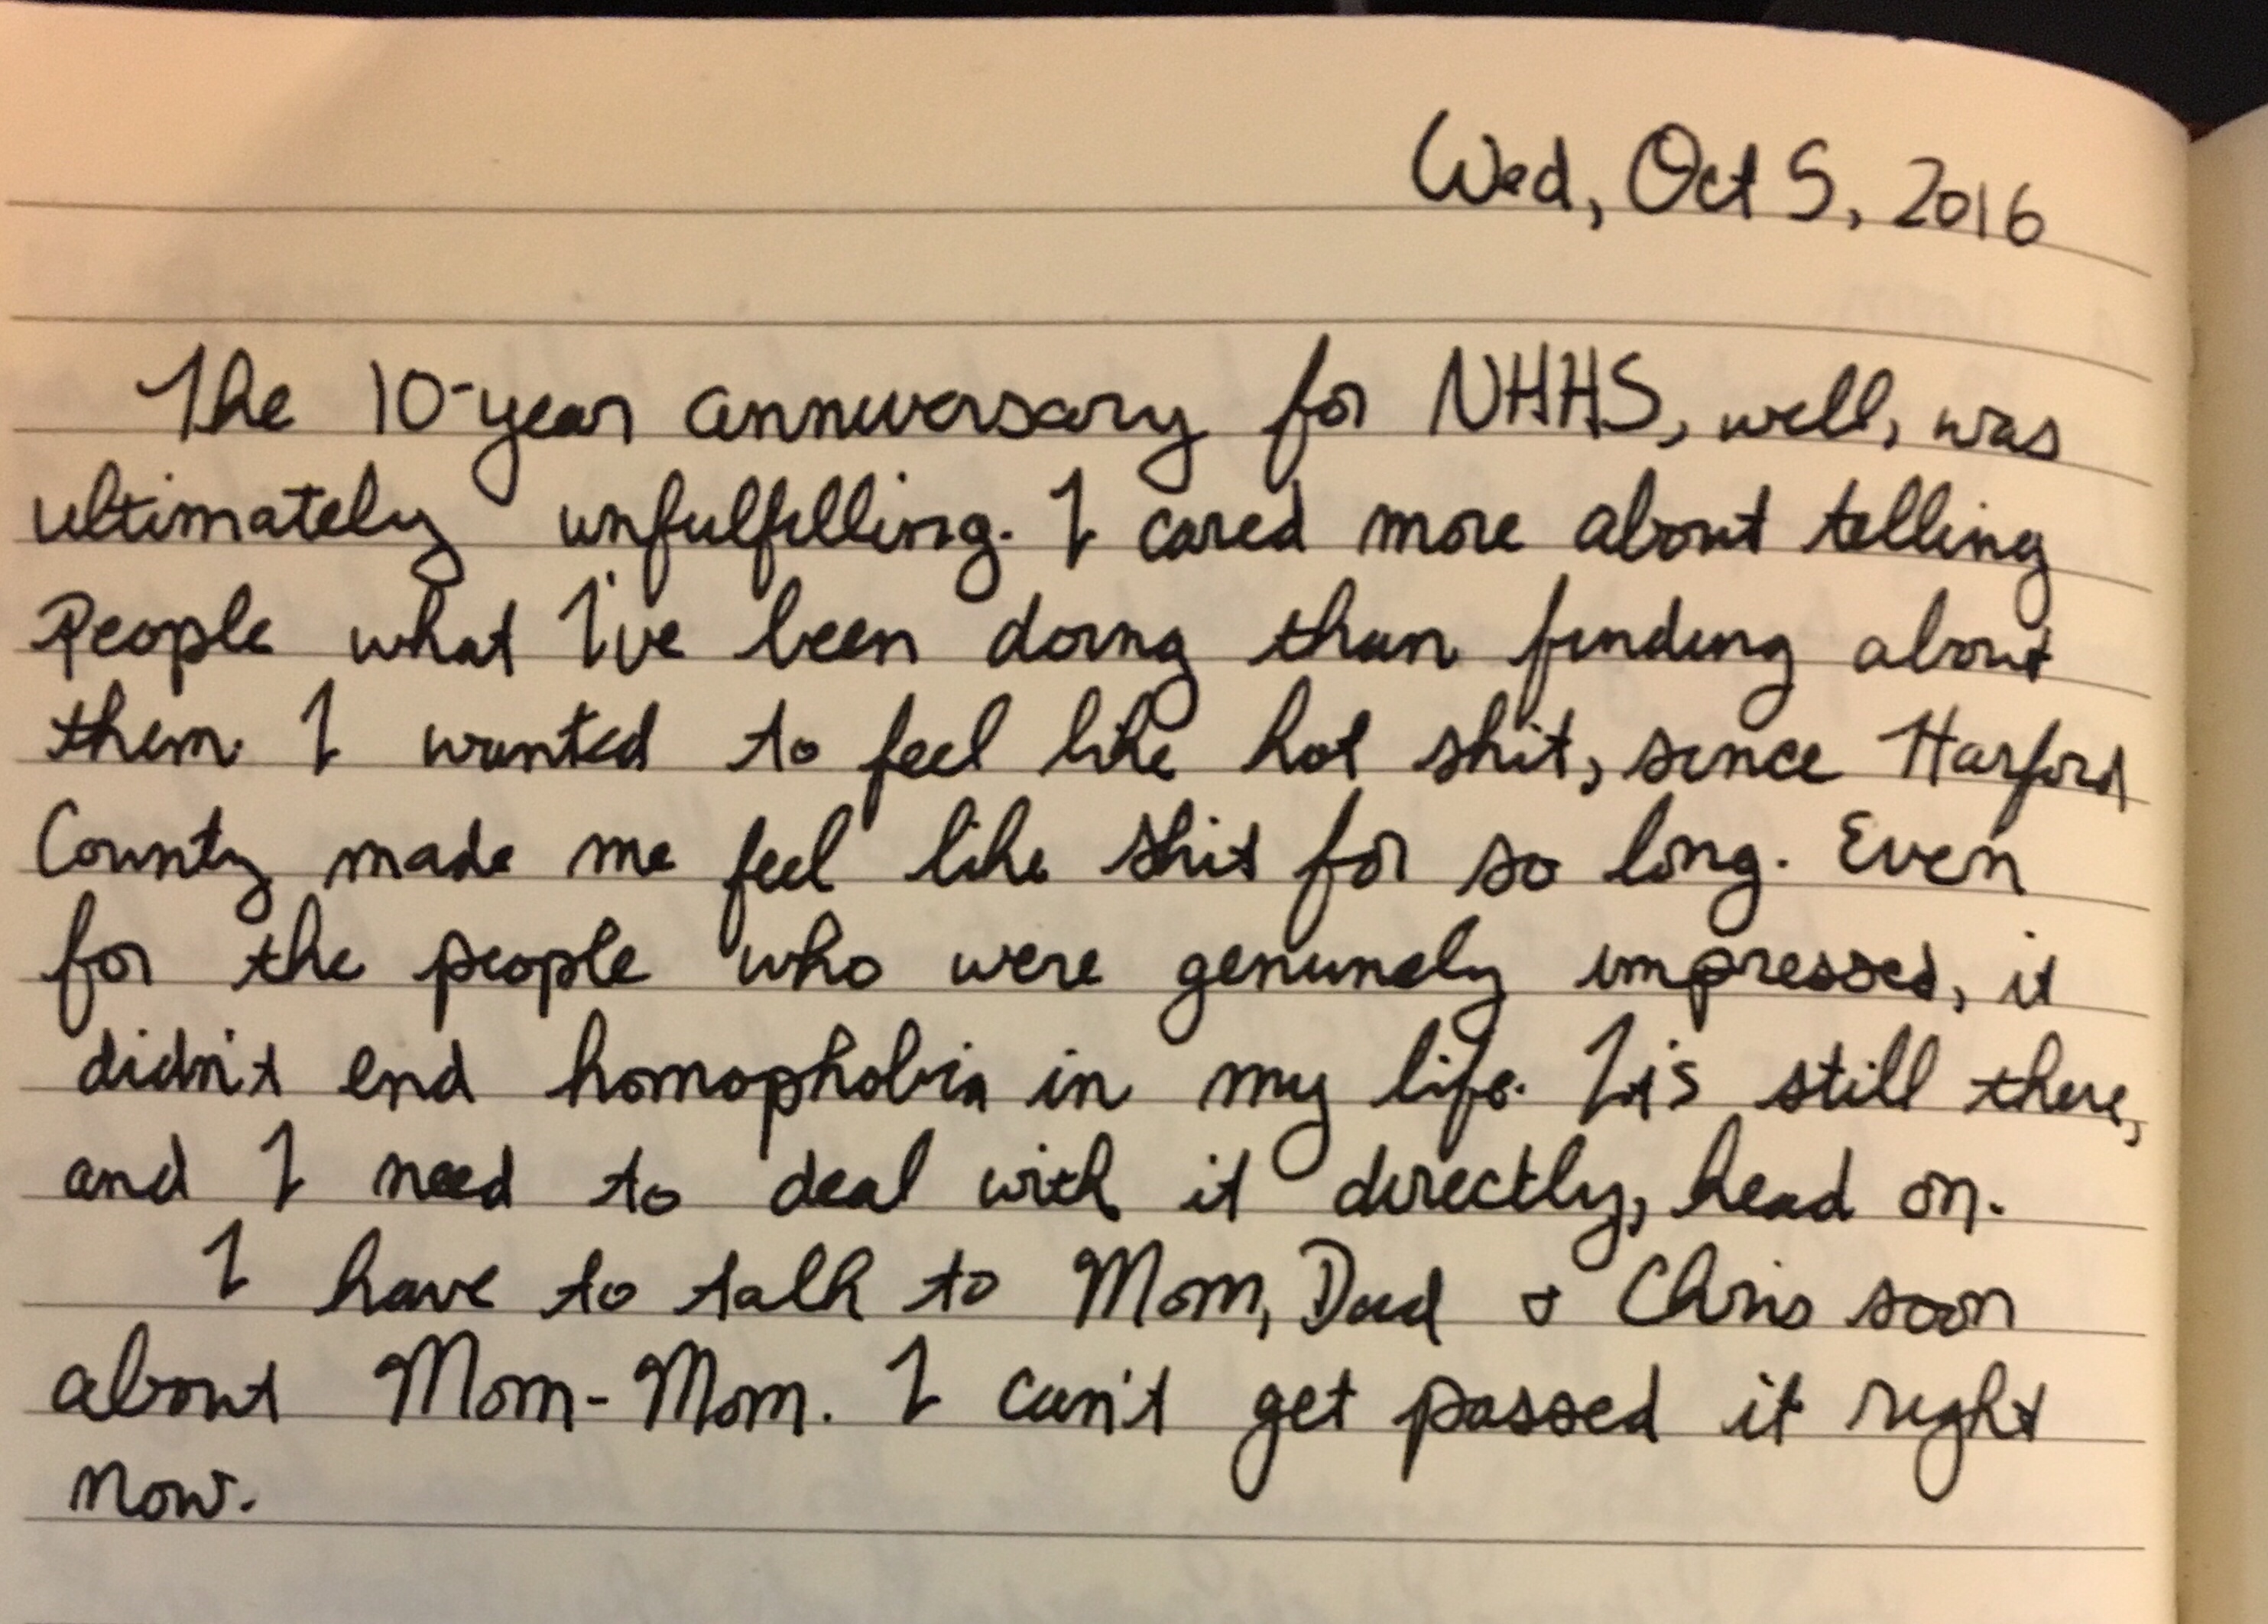 Wed, Oct 5, 2016
The 10-year anniversary for NHHS, well, was
ultimately unfulfilling. I cared more about telling
People what I've been doing than finding about
them. I wanted to feel like hot shit, since Harford
County made me feel like shit for so long. Even
for the people who were genuinely impressed, it
didn't end homophobia in my life. It's still there,
and I need to deal with it directly, head on.
I have to talk to Mom, Dad & Chris soon
about Mom-Mom. I can't get passed it right
now.